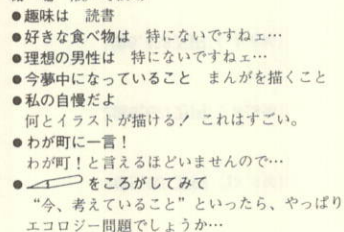 ●趣味は　読書
●好きな食べ物は　特にないですねェ…
●理想の男性は　特にないですねェ…
●今夢中になっていること　まんがを描くこと
●私の自慢だよ
何とイラストが描ける！ これはすごい。
●わが町に一言！
わが町！と言えるほどいませんので…
●をころがしてみて
“今、考えていること”といったら、やっぱり
エコロジー問題でしょうか…